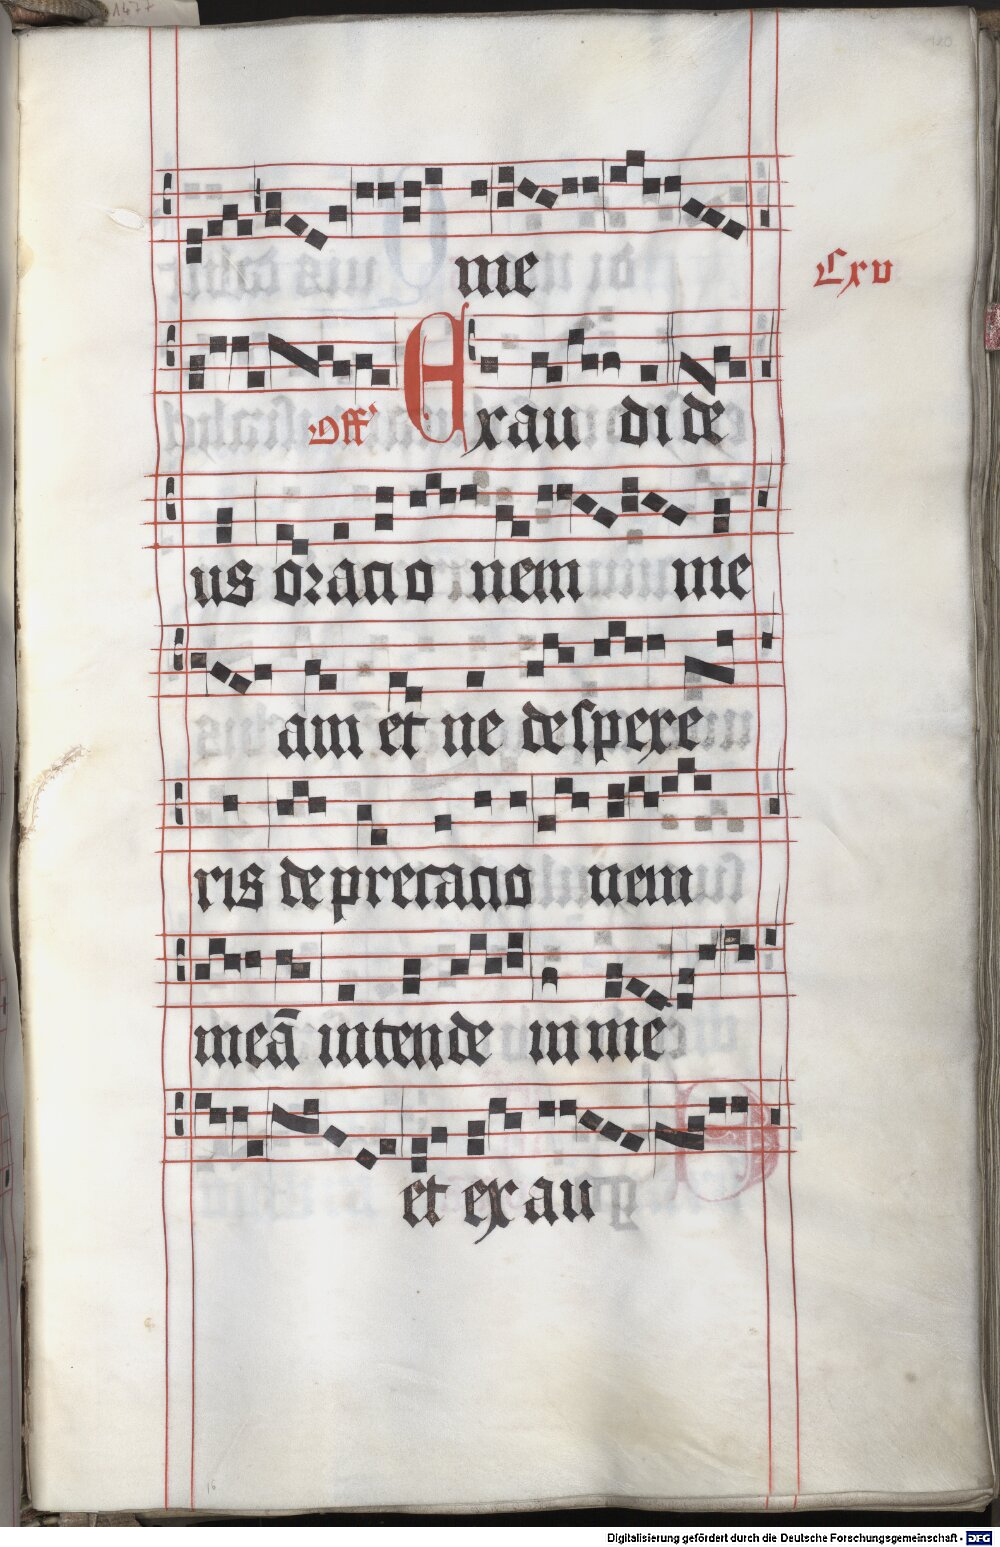 me
Cxv
Off' Exau di de
us oracio nem me
am et ne despexe
ris deprecacio nem
meā intende in me
et exau
16
Digitalisierung gefördert durch die Deutsche Forschungsgemeinschaft - DFG